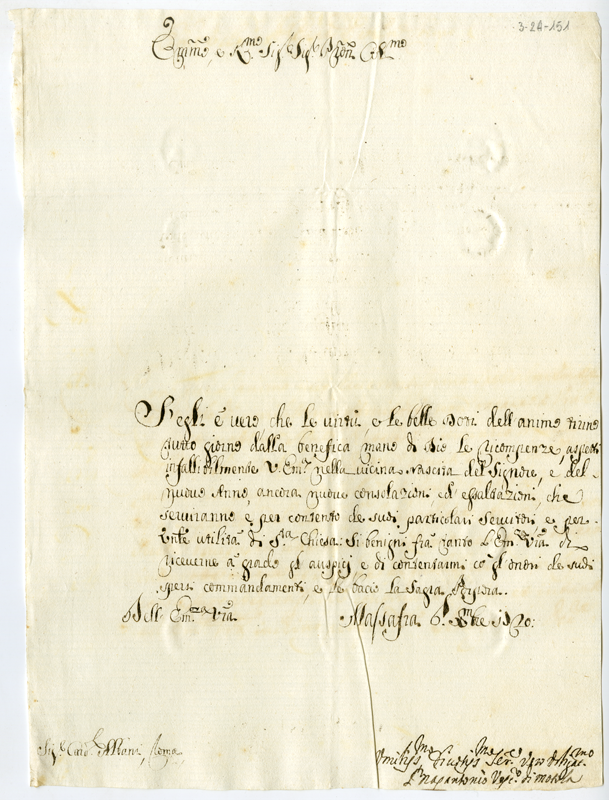 3-2A-151
Em̃o, e R̃mo Sig.r Sig.r P̃ron Col.mo
S'egli è vero che le virtù e le belle doti dell'animo
giorno dalla benefica mano di Dio le ricompenze, aspetti
infallibilmente V. Em.a nella vicina Nascita del Signore, e del
nuovo Anno, ancora nuove consolazioni ed essaltazioni, che
serviranno e per contento de suoi particolari servitori e per
utilità di S.ta Chiesa. Si benigni fra tanto l'Em.za Ṽra di
riceverne à grado gl'auspicj e di contentarmi co gl'onori de suoi
commandamenti, e le bacio la Sagra Porpora.
Di V. Em.za Ṽra Massafra 6. X̃mbre 1720.
Sig.r Card.l Albani, Roma
Umiliss.mo Ser.e
di Motola